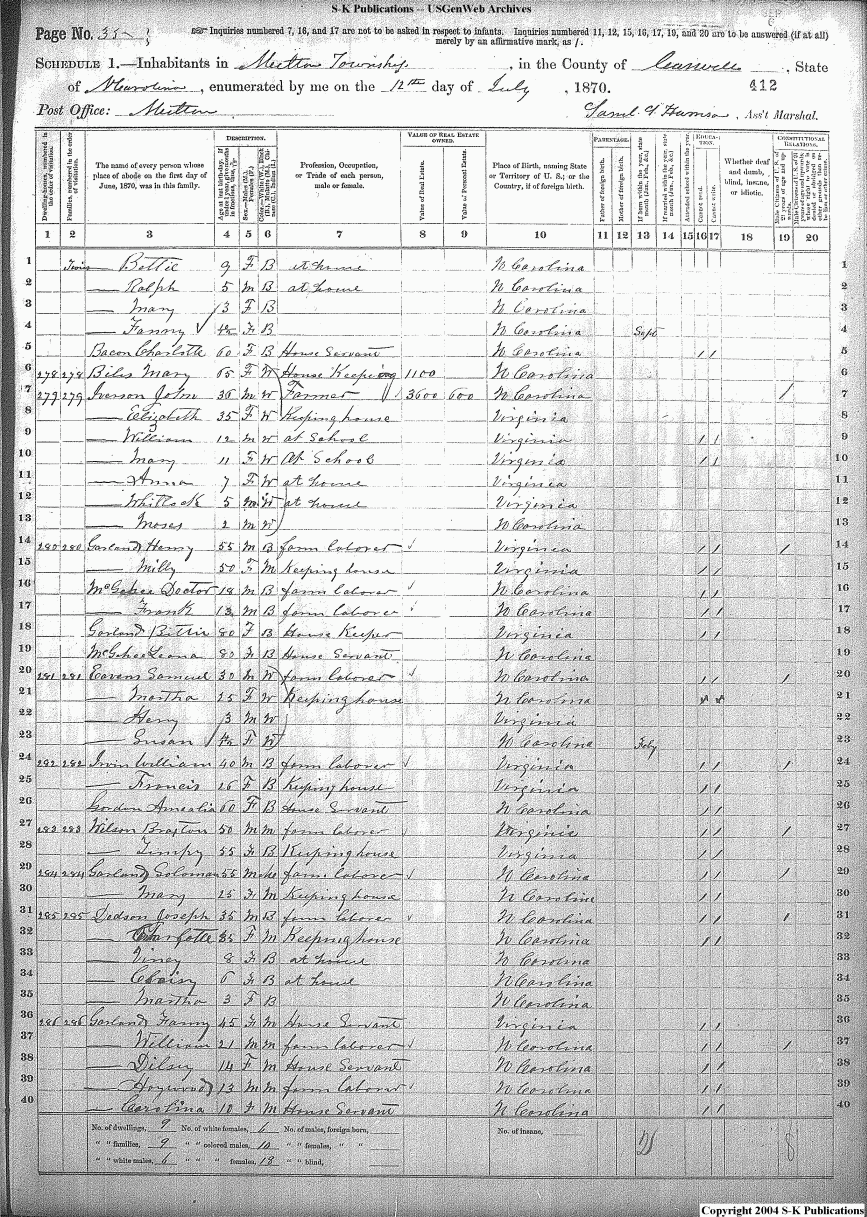 S-K Publications -- USGenWeb Archives
Page No. 35
Inquiries numbered 7, 16, and 17 are not to be asked in respect to infants. Inquiries numbered 11, 12, 15, 16, 17, 19, and 20 are to be answered (if at all) merely by an affirmative mark, as /.
SCHEDULE 1.—Inhabitants in Milton Township, in the County of Caswell, State
of N Carolina, enumerated by me on the 12th day of July, 1870. 412
Post Office: Milton Ass't Marshal.
Dwelling-houses, numbered in the order of visitation.
Families, numbered in the order of visitation.
The name of every person whose place of abode on the first day of June, 1870, was in this family.
DESCRIPTION.
Profession, Occupation, or Trade of each person, male or female.
VALUE OF REAL ESTATE OWNED.
Value of Real Estate.
Value of Personal Estate.
Place of Birth, naming State or Territory of U. S.; or the Country, if of foreign birth.
PARENTAGE.
Father of foreign birth.
Mother of foreign birth.
Attended school within the year.
EDUCATION.
Cannot read.
Cannot write.
Whether deaf and dumb, blind, insane, or idiotic.
CONSTITUTIONAL RELATIONS.
1 2 3 4 5 6 7 8 9 10 11 12 13 14 15 16 17 18 19 20
1 — Bettie 9 F B at home N Carolina 1
2 — Ralph 5 M B at home N Carolina 2
3 — Mary 3 F B N Carolina 3
4 — Fanny F B N Carolina Sept 4
5 Bacon Charlotte 60 F B House Servant N Carolina / / 5
6 278 278 Biles Mary 65 F W House Keeping 1100 N Carolina 6
7 279 279 Iverson John 36 M W Farmer 3600 600 N Carolina / 7
8 — Elizabeth 35 F W Keeping house Virginia 8
9 — William 12 M W at School Virginia / / 9
10 — Mary 11 F W At School Virginia / / 10
11 — Anna 7 F W at home Virginia 11
12 — Whitlock 5 M W at home Virginia 12
13 — Moses 2 M W N Carolina 13
14 280 280 Garland Henry 55 M B farm laborer Virginia / / / 14
15 — Milly 50 F M Keeping house Virginia / / 15
16 McGehee Doctor 18 M B farm laborer N Carolina / / 16
17 — Frank 13 M B farm laborer N Carolina / / 17
18 Garland Bettie 80 F B House Keeper Virginia / / 18
19 McGehee 80 F B House Servant N Carolina 19
20 281 281 Eavens Samuel 30 M W farm laborer N Carolina / / / 20
21 — Martha 25 F W Keeping house N Carolina 21
22 — Henry 3 M W Virginia 22
23 — Susan F W N Carolina Feby 23
24 282 282 Irvin William 40 M B farm laborer Virginia / / / 24
25 — Francis 26 F B Keeping house Virginia / / 25
26 Gordon Amealia 60 F B House Servant N Carolina / / 26
27 283 283 Wilson Braxton 50 M M farm laborer Virginia / / / 27
28 — Timpy 55 F B Keeping house Virginia / / 28
29 284 284 Garland Soloman 55 M farm laborer N Carolina / / / 29
30 — Mary 25 F M Keeping house N Carolina / / 30
31 285 285 Dodson Joseph 35 M B farm laborer N Carolina / / / 31
32 — Charlotte 35 F M Keeping house N Carolina / / 32
33 — Viney 8 F B at home N Carolina 33
34 — 6 F B at home N Carolina 34
35 — Martha 3 F B N Carolina 35
36 286 286 Garland Fanny 45 F M House Servant Virginia / / 36
37 — William 21 M M farm laborer N Carolina / / / 37
38 — Dilsey 14 F M House Servant N Carolina / / 38
39 — Haywood 13 M M farm laborer N Carolina / / 39
40 — Carolina 10 F M House Servant N Carolina / / 40
No. of dwellings, 9 No. of white females, 6 No. of males, foreign born, No. of insane,
" " families, 9 " " colored males, 10 " " females, " "
" " white males, 6 " " " females, 18 " " blind, 8
Copyright 2004 S-K Publications